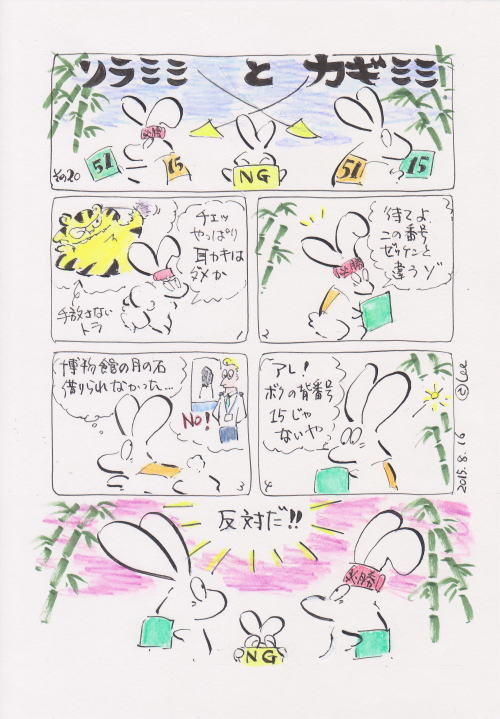 ソラミミ と カギミミ
必勝
その20
51
15
NG
51
15
チェッ
やっぱり
耳カキは
ダメか
手放さない
トラ
1
待てよ
この番号
ゼッケンと
違うゾ
必勝
2
博物館の月の石
借りられなかった…
NO!
3
アレ!
ボクの背番号
15じゃ
ないや
4
©Lee
2015.8.16
反対だ!!
必勝
NG